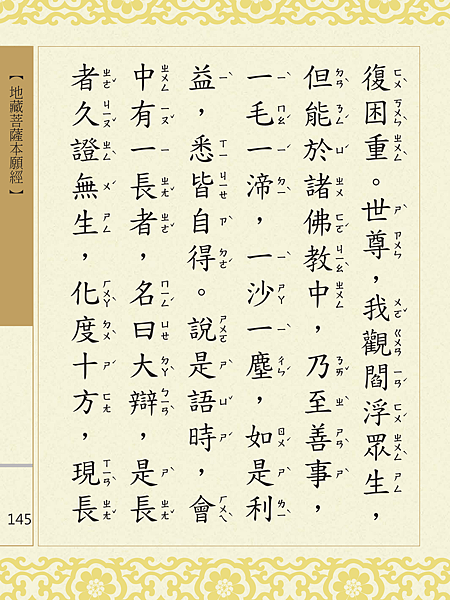 復困重。世尊，我觀閻浮眾生，
但能於諸佛教中，乃至善事，
一毛一渧，一沙一塵，如是利
益，悉皆自得。說是語時，會
中有一長者，名曰大辯，是長
者久證無生，化度十方，現長
【地藏菩薩本願經】
145